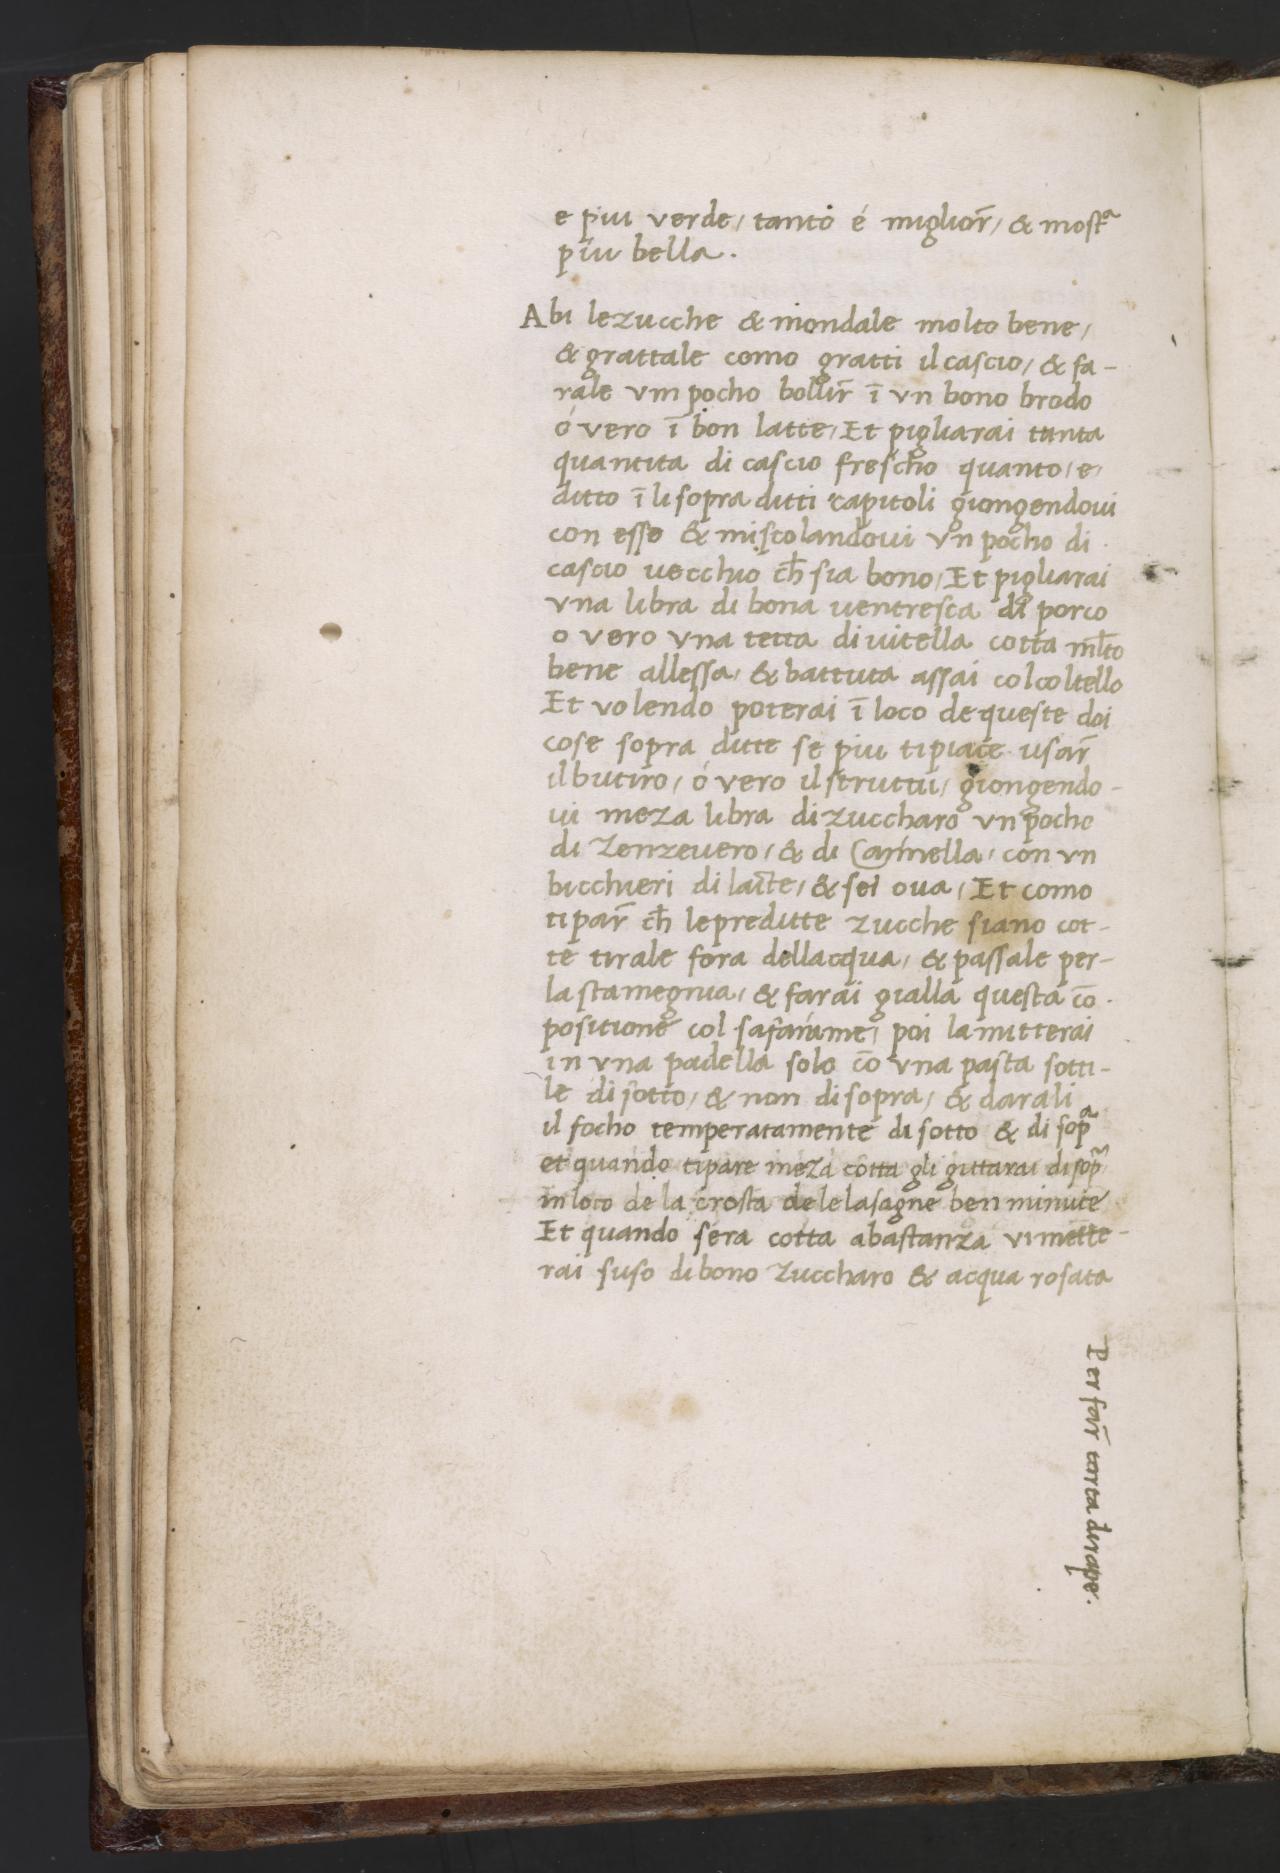 e piu verde, tanto é miglior̄, & mostᵃ
piu bella.
Abi le zucche & mondale molto bene,
& grattale como gratti il cascio, & fa-
rale vm pocho bollir̄ ī vn bono brodo
ó vero ī bon latte, Et pigliarai tanta
quantita di cascio frescho quanto, e,
ditto ī li sopra ditti capitoli giongendoui
con esso & miscolandoui vn pocho di
cascio uecchio ch̄ sia bono, Et pigliarai
vna libra di bona uentresca di porco
o vero vna tetta di uitella cotta ml̄to
bene allessa, & battuta assai col coltello
Et volendo poterai ī loco de queste doi
cose sopra ditte se piu ti piace usar̄
il butiro, ó vero il struttu, giongendo-
ui meza libra di zuccharo vn pocho
di Zenzevero, & di Cannella, con vn
bicchieri di latte, & sei oua, Et como
ti par̄ ch̄ le preditte zucche siano cot-
te tirale fora dellacqua, & passale per-
la stamegnia, & farai gialla questa cō-
positione col safarame, poi la mitterai
in vna padella solo cō vna pasta sotti-
le di sotto, & non di sopra, & darali
il focho temperatamente di sotto & di sopᵃ
et quando ti pare meza cotta gli gittarai di sopᵃ
in loco de la crosta de le lasagne ben minute
Et quando sera cotta abastanza vi mette-
rai suso di bono Zuccharo & acqua rosata
Per far̄ torta di rape.